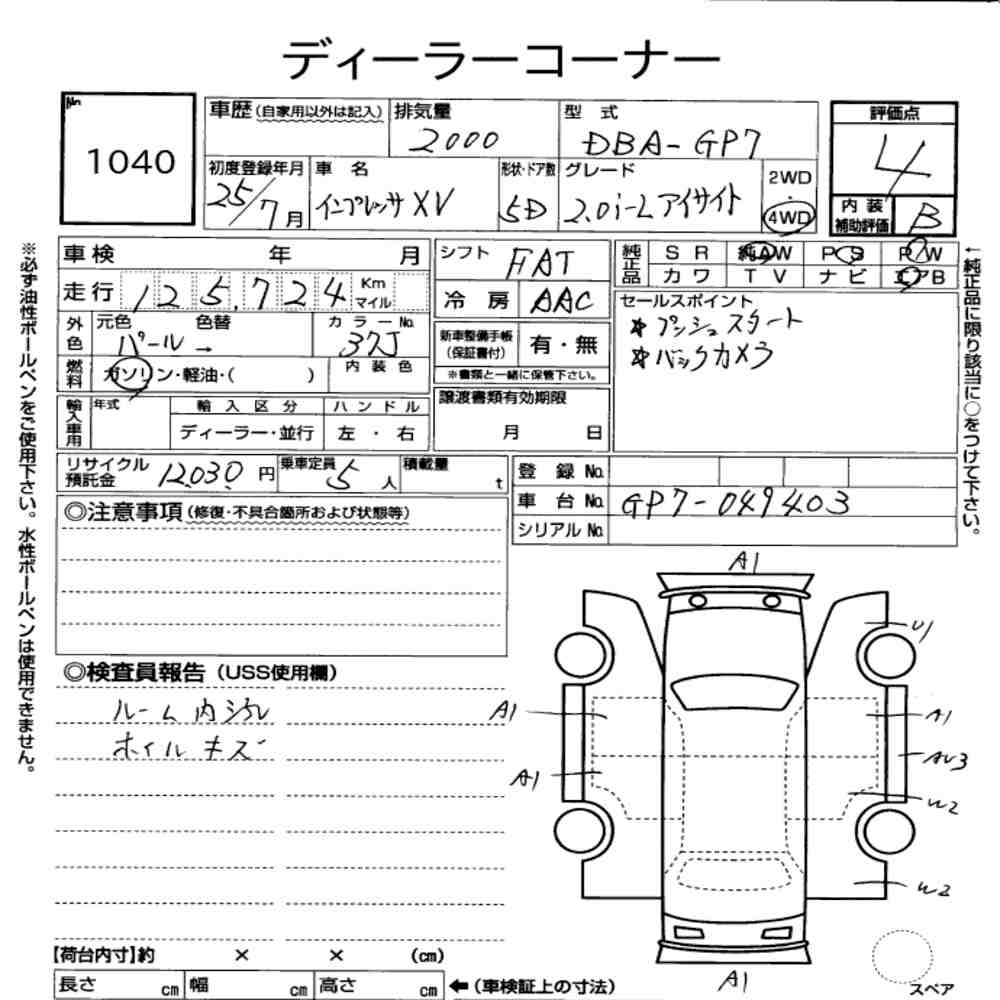 ディーラーコーナー
No.
1040
車歴(自家用以外は記入)
排気量
2000
型式
DBA-GP7
評価点
4
初度登録年月
25/7月
車名
インプレッサXV
形状・ドア数
5D
グレード
2.0i-L アイサイト
2WD
・
4WD
内装
補助評価
B
車検 年 月
シフト
FAT
純正品
SR 純AW PS P/W
カワ TV ナビ エアB
走行 125,724 Km マイル
冷房 AAC
セールスポイント
*プッシュスタート
*バックカメラ
外色
元色 色替 カラーNo.
パール→ 37J
新車整備手帳
(保証書付)
有・無
※書類と一緒に保管下さい。
燃料
ガソリン・軽油・( )
内装色
譲渡書類有効期限
月 日
輸入車用
年式
輸入区分
ハンドル
ディーラー・並行
左・右
リサイクル
預託金
12,030 円
乗車定員 5 人
積載量 t
登録No.
車台No. GP7-049403
シリアルNo.
※必ず油性ボールペンをご使用下さい。水性ボールペンは使用できません。
←純正品に限り該当に○をつけて下さい。
◎注意事項(修復・不具合箇所および状態等)
◎検査員報告(USS使用欄)
ルーム内汚れ
ホイルキズ
A1
U1
A1
A1
AU3
A1
W2
W2
A1
スペア
【荷台内寸】約 × × (cm)
長さ cm 幅 cm 高さ cm ←(車検証上の寸法)